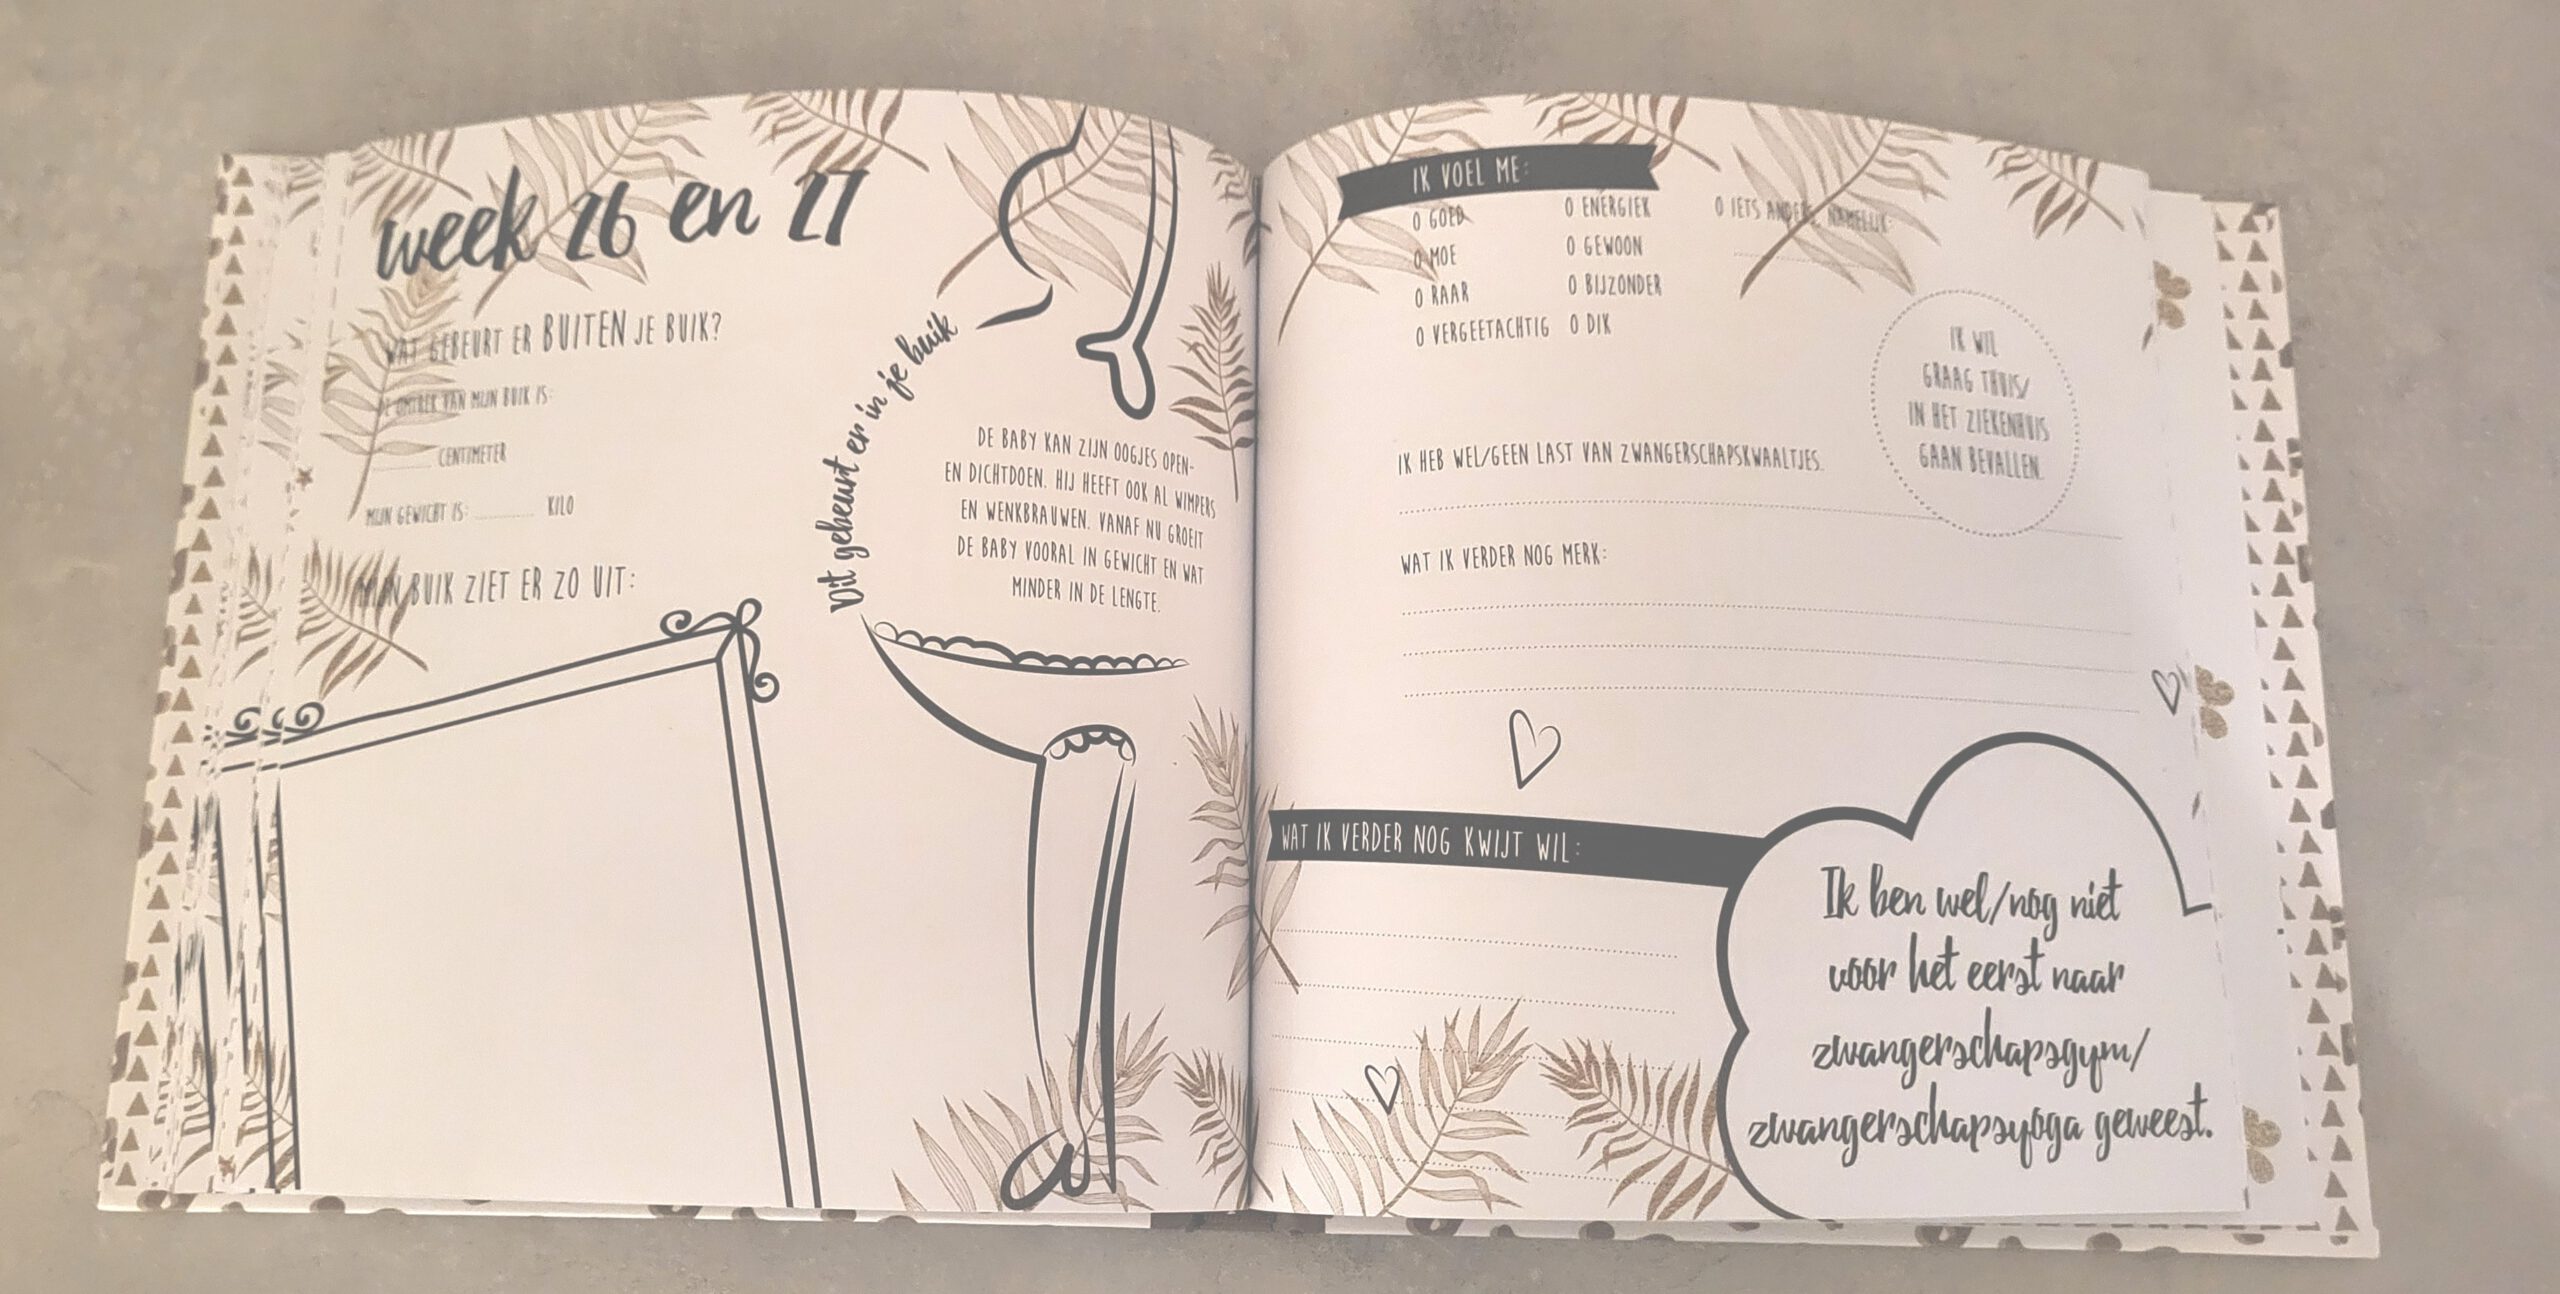 week 26 en 27
WAT GEBEURT ER BUITEN JE BUIK?
DE OMTREK VAN MIJN BUIK IS:
CENTIMETER
MIJN GEWICHT IS: KILO
MIJN BUIK ZIET ER ZO UIT:
Dit gebeurt er in je buik
DE BABY KAN ZIJN OOGJES OPEN-
EN DICHTDOEN. HIJ HEEFT OOK AL WIMPERS
EN WENKBRAUWEN. VANAF NU GROEIT
DE BABY VOORAL IN GEWICHT EN WAT
MINDER IN DE LENGTE.
IK VOEL ME:
O GOED
O MOE
O RAAR
O VERGEETACHTIG
O ENERGIEK
O GEWOON
O BIJZONDER
O DIK
O IETS ANDERS, NAMELIJK:
IK WIL
GRAAG THUIS/
IN HET ZIEKENHUIS
GAAN BEVALLEN.
IK HEB WEL/GEEN LAST VAN ZWANGERSCHAPSKWAALTJES.
WAT IK VERDER NOG MERK:
WAT IK VERDER NOG KWIJT WIL:
Ik ben wel/nog niet
voor het eerst naar
zwangerschapsgym/
zwangerschapsyoga geweest.